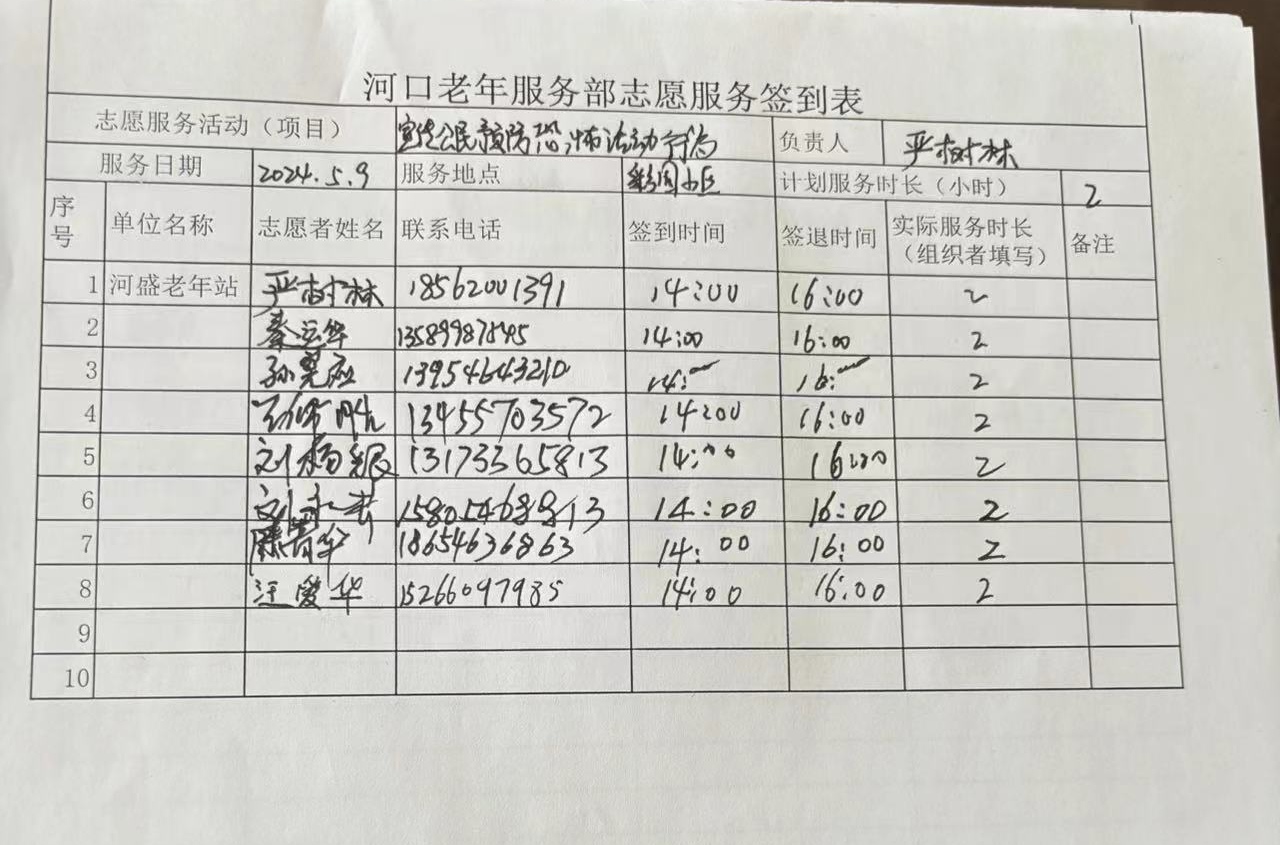 河口老年服务部志愿服务签到表
志愿服务活动（项目） 宣传公民预防恐怖活动行为 负责人 严树林
服务日期 2024.5.9 服务地点 彩园小区 计划服务时长（小时） 2
序号 单位名称 志愿者姓名 联系电话 签到时间 签退时间 实际服务时长（组织者填写） 备注
1 河盛老年站 严树林 18562001391 14:00 16:00 2
2 秦运华 14:00 16:00 2
3 13954643210 14: 16: 2
4 13455703572 14:00 16:00 2
5 刘杨银 13173365813 14:00 16:00 2
6 刘 14:00 16:00 2
7 18654636863 14:00 16:00 2
8 汪爱华 15266097985 14:00 16:00 2
9
10